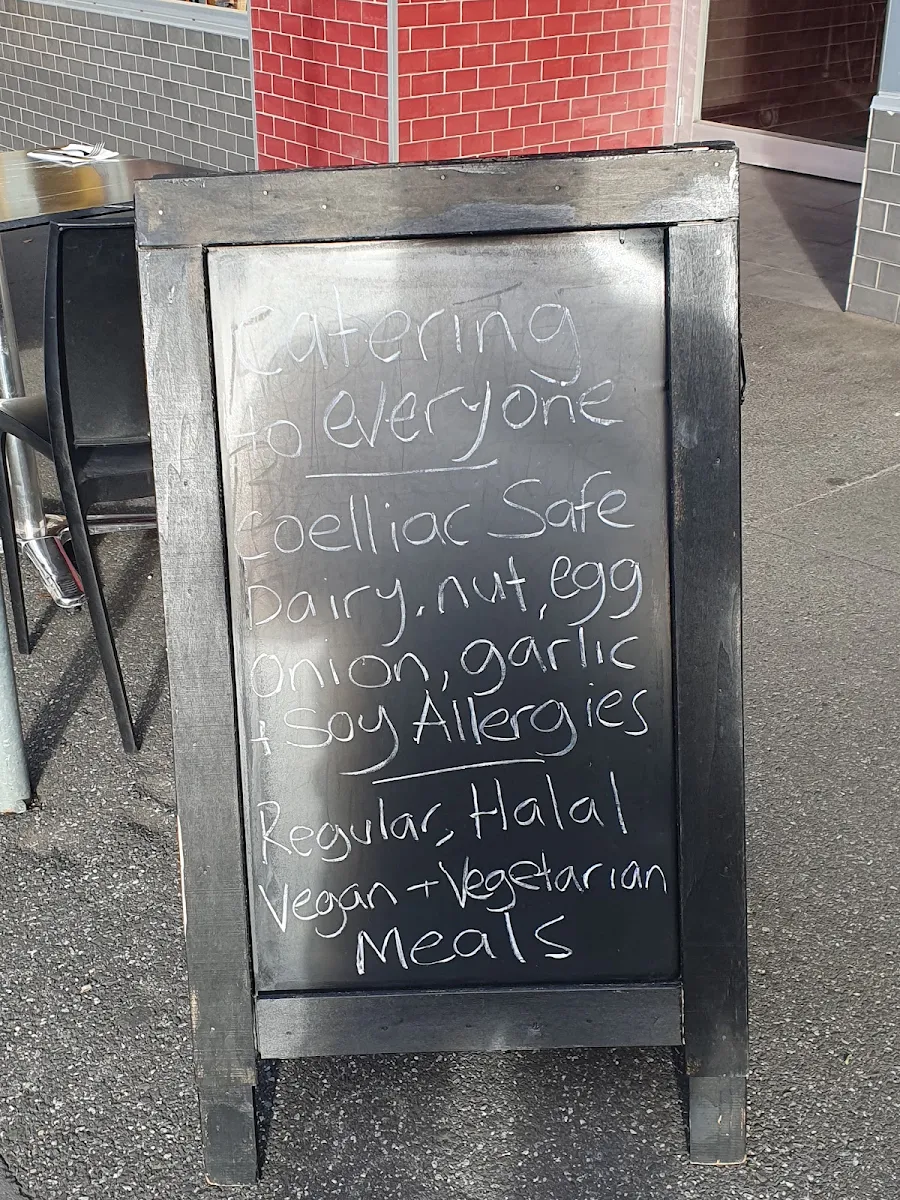 Catering
to everyone
Coelliac Safe
Dairy, nut, egg
onion, garlic
+ Soy Allergies
Regular, Halal
Vegan + Vegetarian
Meals